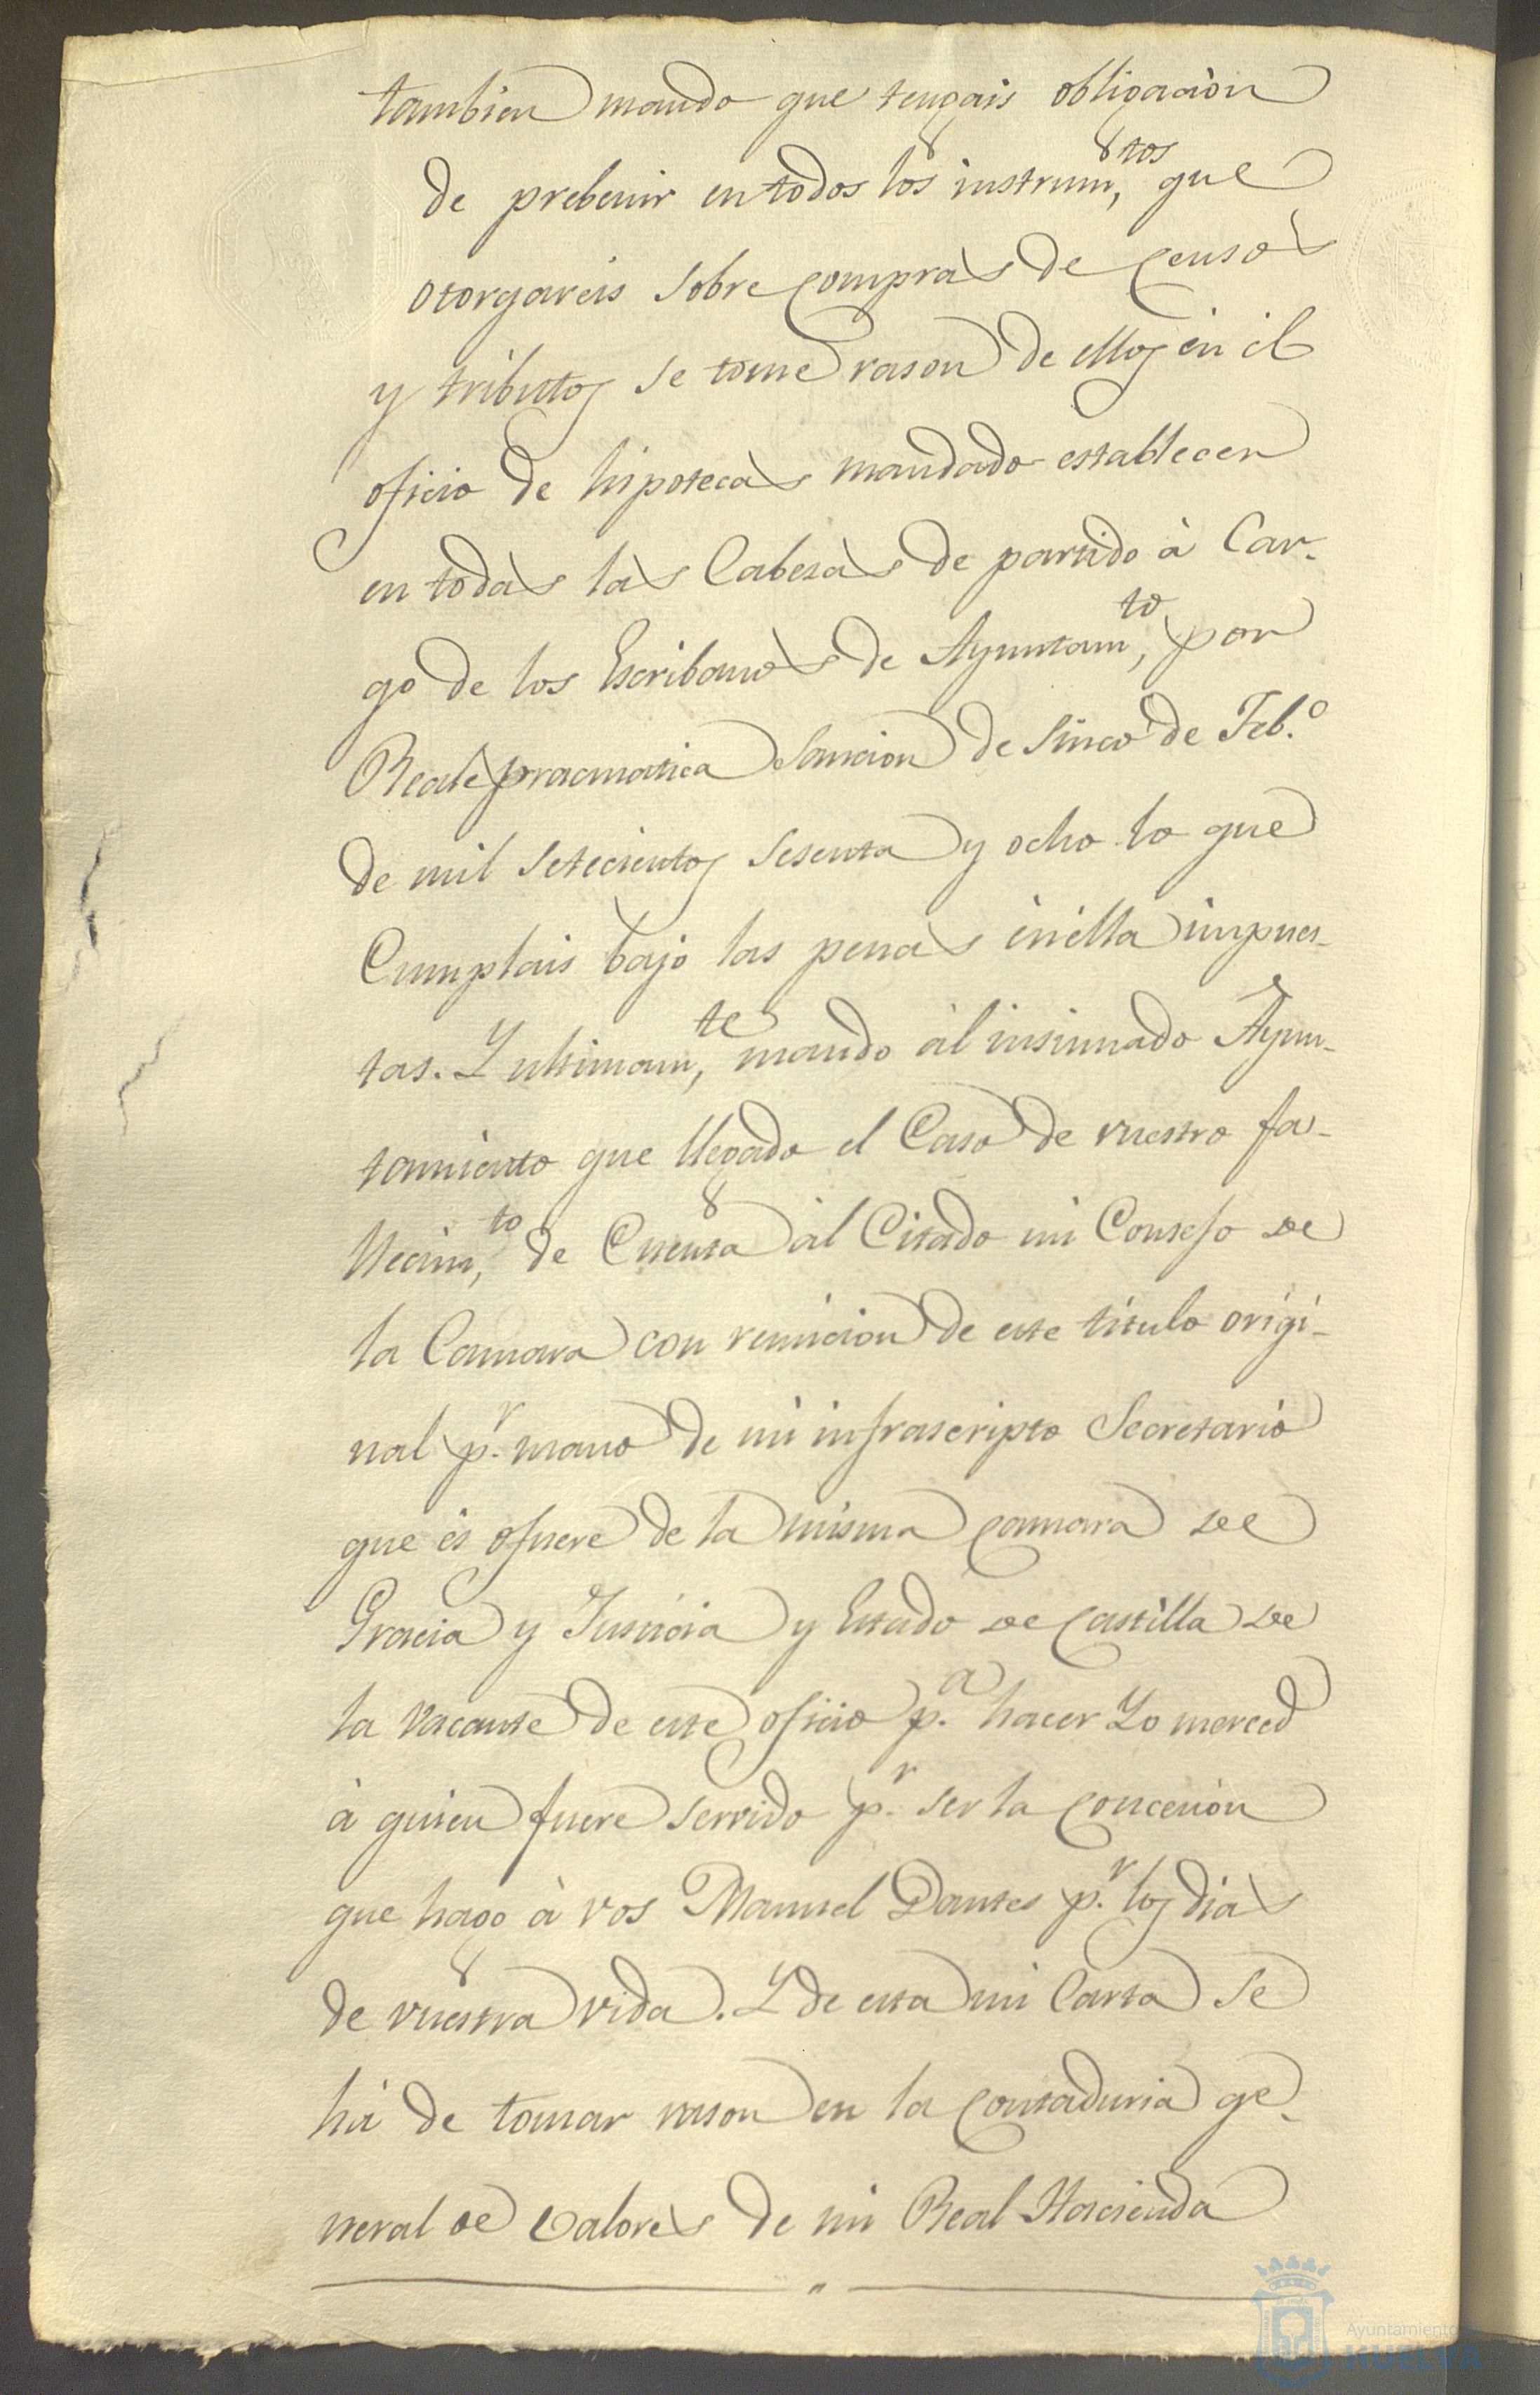 tambien mando que tengais obligacion
de prebenir en todos los instrum,tos que
otorgareis sobre compras de censos
y tributos se tome rason de ellos en el
oficio de hipotecas mandado establecer
en todas las Cabesas de partido à Car-
go de los Escribanos de Ayuntam,to por
Real pracmatica sancion de sinco de Feb.o
de mil setecientos sesenta y ocho lo que
Cumplais bajo las penas en ella impues-
tas. Y ultimam,te mando àl insinuado Ayun-
tamiento que llegado el Caso de vuestro fa-
llecim,to de Cuenta àl Citado mi Consejo de
la Camara con remicion de este titulo origi-
nal p.r mano de mi infrascripto Secretario
que és ofuere de la misma camara de
Gracia y Justicia y Estado de Castilla de
la vacante de este oficio p.a hacer Yo merced
à quien fuere servido p.r ser la concecion
que hago à vos Manuel Dantes p.r los dias
de vuestra vida. Y de esta mi Carta se
hà de tomar rason en la contaduria ge-
neral de Valores de mi Real Hacienda
Ayuntamiento
HUELVA